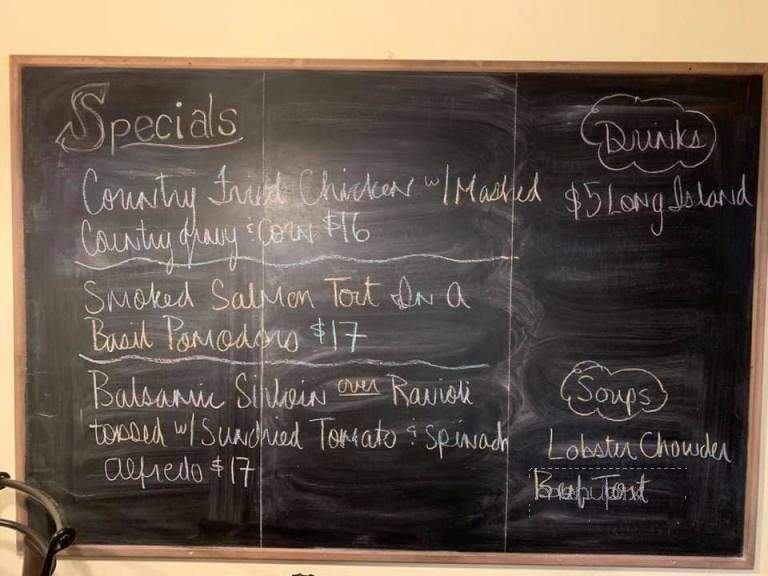 Specials
Country Fried Chicken w/ Mashed
Country gravy & Corn $16
Smoked Salmon Tort In A
Basil Pomodoro $17
Balsamic Sirloin over Ravioli
tossed w/ Sundried Tomato & Spinach
Alfredo $17
Drinks
$5 Long Island
Soups
Lobster Chowder
Beef Tort